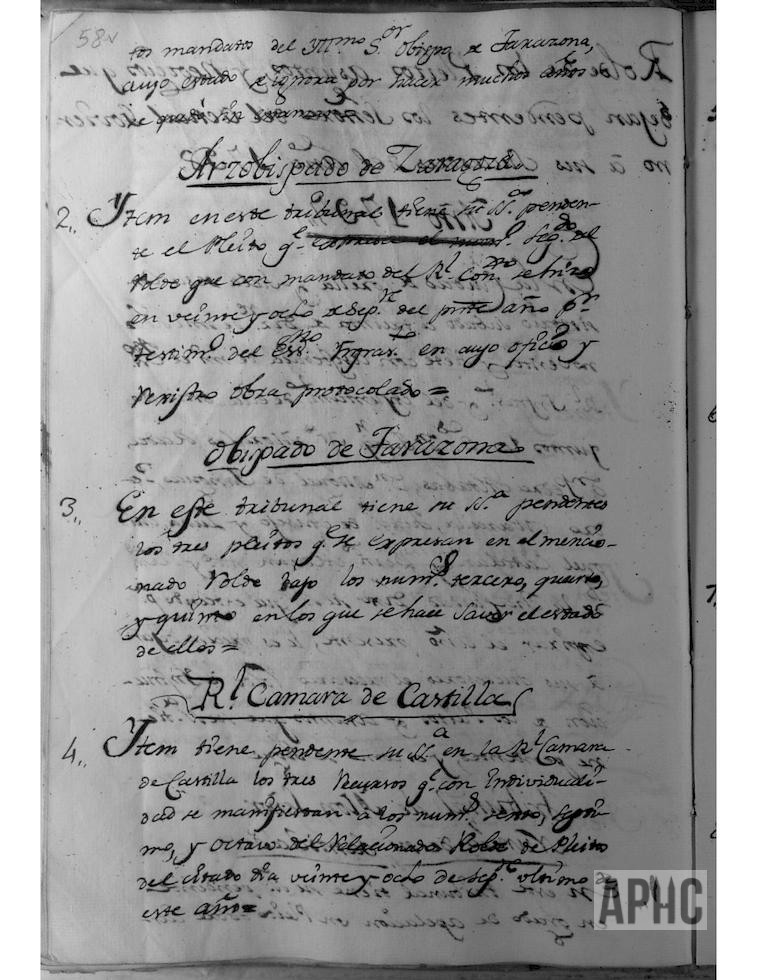 58v
tos mandatos del Yllmo Sor Obispo de Tarazona,
cuyo estado se ignora por hacer muchos años
se
Arzobispado de Zaragoza
2,, Ytem en este tribunal tiene su Sª penden-
te el Pleito qe expresa el numº Segdo del
Rolde que con mandato del Rl Conzo se hizo
en veinte y ocho de Sepre del prte año pr
testimº del Essno Yngras Lo en cuyo oficio y
Rexistro obra protocolado =
Obispado de Tarazona
3,, En este tribunal tiene su Sª pendentes
los tres pleitos qe se expresan en el mencio-
nado Rolde vajo los nums tercero, quarto,
y quinto en los que se hace Saver el estado
de ellos =
Rl Camara de Castilla
4,, Ytem tiene pendente su Sª en la Rl Camara
de Castilla los tres Recursos qe con Individuali-
dad se manifiestan a los nums sexto, septi-
mo, y octavo del Relacionado Rolde de Pleitos
del citado dia veinte y ocho de Sepre vltimo de
este año =
APHC